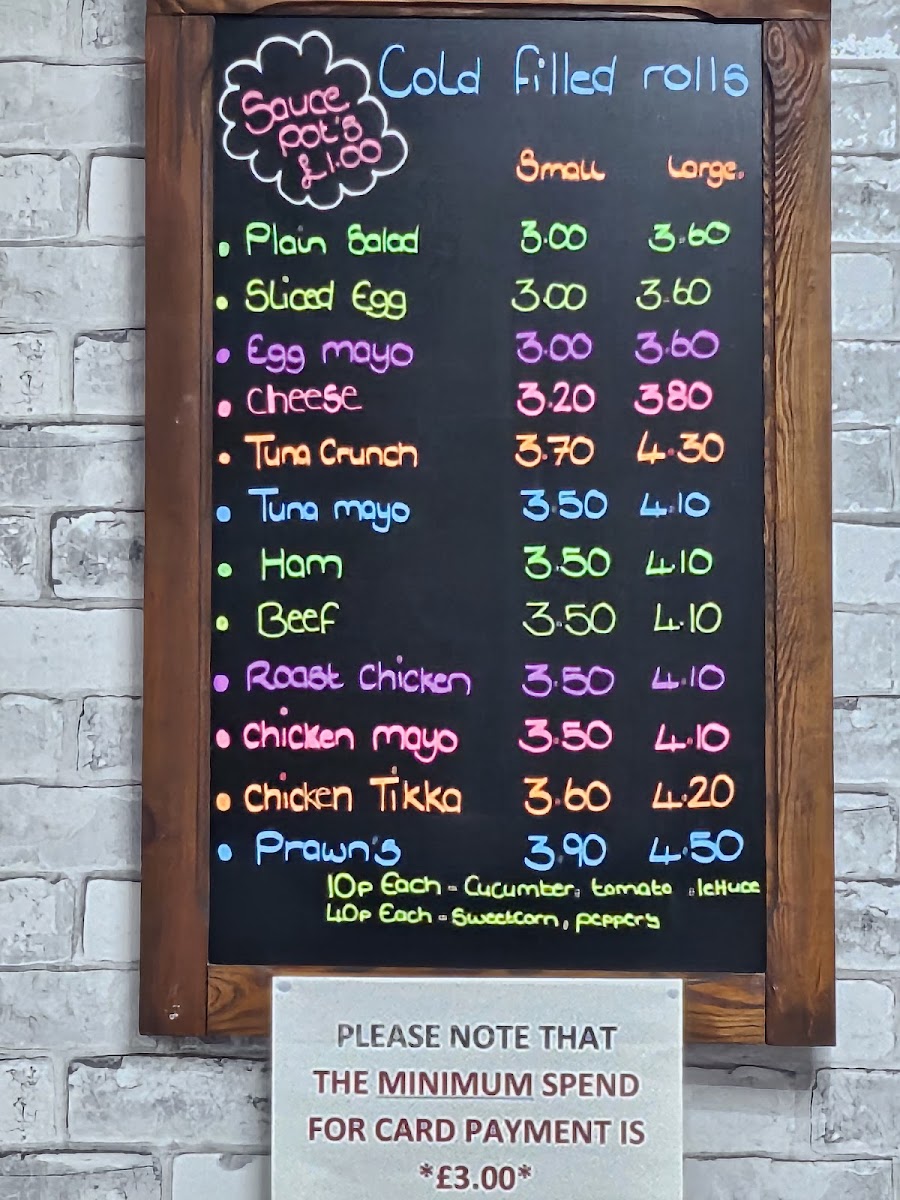 Cold filled rolls
Sauce
pot's
£1.00
Small Large.
• Plain Salad 3.00 3.60
• Sliced Egg 3.00 3.60
• Egg mayo 3.00 3.60
• Cheese 3.20 3.80
• Tuna Crunch 3.70 4.30
• Tuna mayo 3.50 4.10
• Ham 3.50 4.10
• Beef 3.50 4.10
• Roast Chicken 3.50 4.10
• Chicken mayo 3.50 4.10
• Chicken Tikka 3.60 4.20
• Prawn's 3.90 4.50
10p Each - Cucumber, tomato, lettuce
40p Each - Sweetcorn, peppery
PLEASE NOTE THAT
THE MINIMUM SPEND
FOR CARD PAYMENT IS
*£3.00*